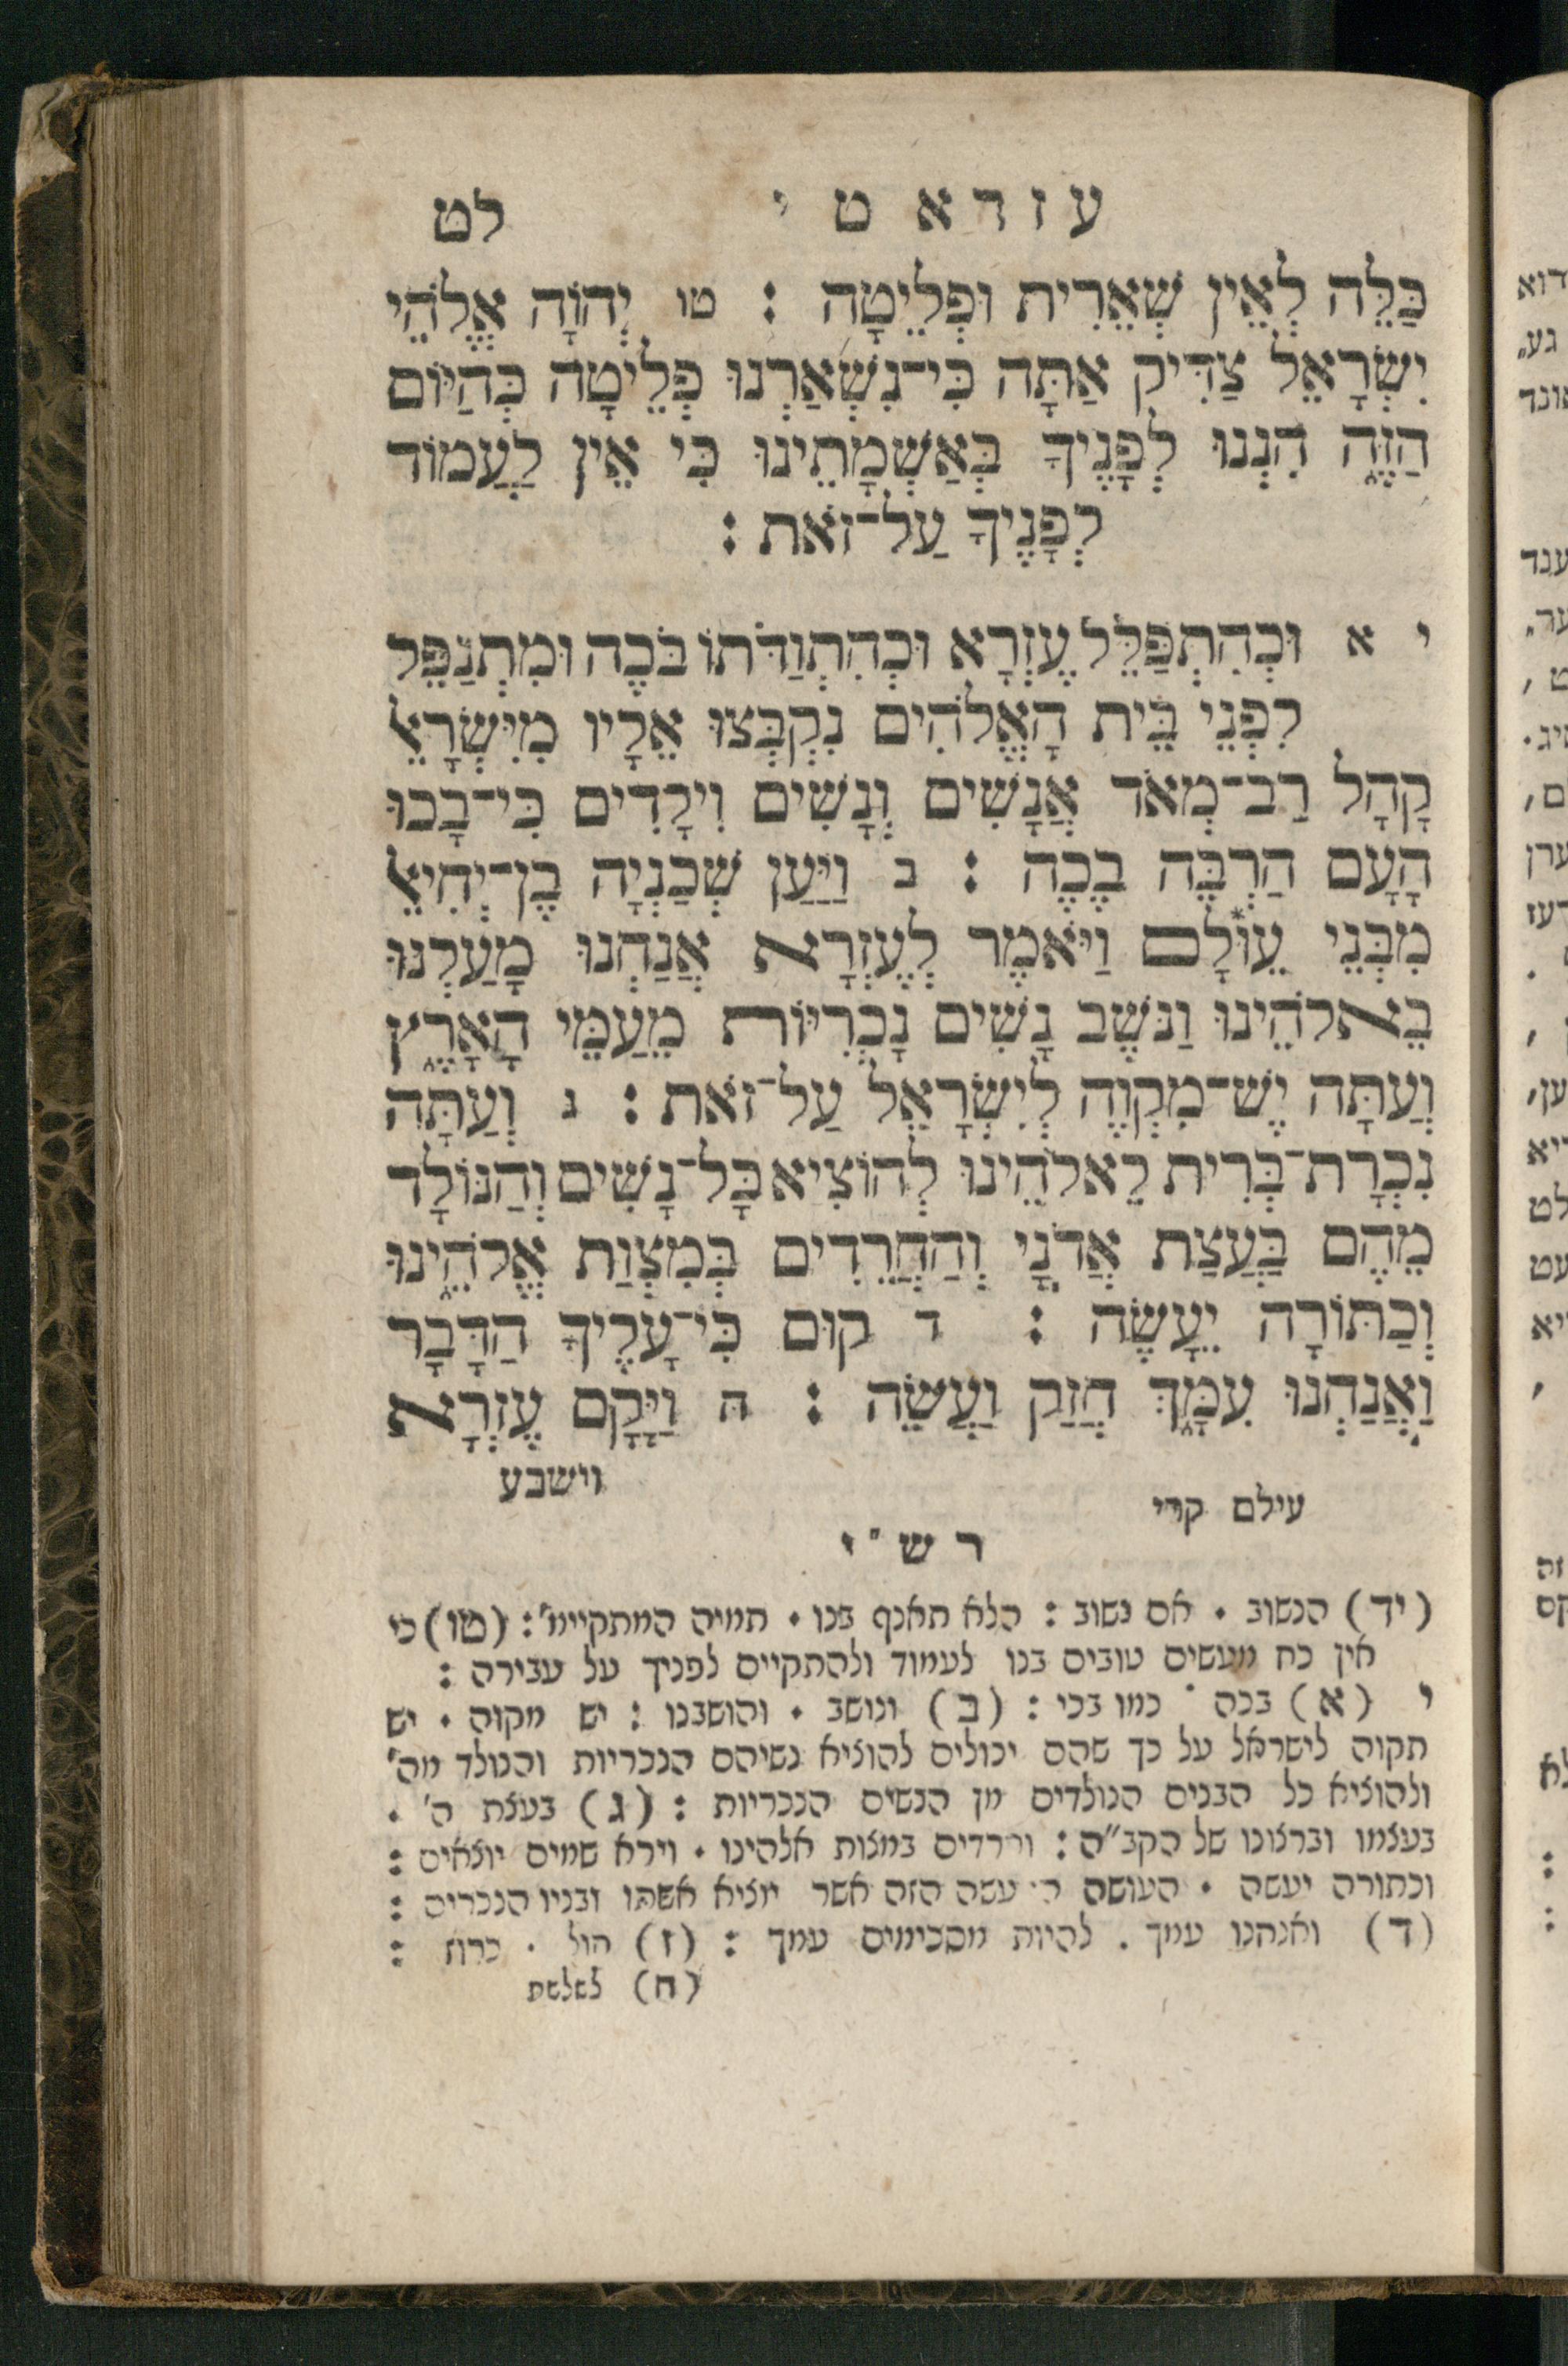 עזרא ט י לט
כַּלֵּה לְאֵין שְׁאֵרִית וּפְלֵיטָה : טו יְהוָֹה אֱלֹהֵי
יִשְׂרָאֵל צַדִּיק אַתָּה כִּי־נִשְׁאַרְנוּ פְלֵיטָה כְּהַיּוֹם
הַזֶּה הִנְנוּ לְפָנֶיךָ בְּאַשְׁמָתֵינוּ כִּי אֵין לַעֲמוֹד
לְפָנֶיךָ עַל־זֹאת :
י א וּכְהִתְפַּלֵּל עֶזְרָא וּכְהִתְוַדֹּתוֹ בֹּכֶה וּמִתְנַפֵּל
לִפְנֵי בֵּית הָאֱלֹהִים נִקְבְּצוּ אֵלָיו מִיִּשְׂרָאֵל
קָהָל רַב־מְאֹד אֲנָשִׁים וְנָשִׁים וִילָדִים כִּי־בָכוּ
הָעָם הַרְבֵּה בֶכֶה : ב וַיַּעַן שְׁכַנְיָה בֶן־יְחִיאֵל
מִבְּנֵי עֵוֹלָם* וַיֹּאמֶר לְעֶזְרָא אֲנַחְנוּ מָעַלְנוּ
בֵאלֹהֵינוּ וַנֹּשֶׁב נָשִׁים נָכְרִיּוֹת מֵעַמֵּי הָאָרֶץ
וְעַתָּה יֶשׁ־מִקְוֶה לְיִשְׂרָאֵל עַל־זֹאת : ג וְעַתָּה
נִכְרָת־בְּרִית לֵאלֹהֵינוּ לְהוֹצִיא כָל־נָשִׁים וְהַנּוֹלָד
מֵהֶם בַּעֲצַת אֲדֹנָי וְהַחֲרֵדִים בְּמִצְוַת אֱלֹהֵינוּ
וְכַתּוֹרָה יֵעָשֶׂה : ד קוּם כִּי־עָלֶיךָ הַדָּבָר
וַאֲנַחְנוּ עִמָּךְ חֲזַק וַעֲשֵׂה : ה וַיָּקָם עֶזְרָא
וישבע
עילם קרי
רש"י
(יד) הנשוב • אם נשוב : הלא תאנף בנו • תמיה המתקיימ' : (טו) כי
אין כח מעשים טובים בנו לעמוד ולהתקיים לפניך על עבירה :
י (א) בכה • כמו בכי : (ב) ונושב • והושבנו : יש מקוה • יש
תקוה לישראל על כך שהם יכולים להוציא נשיהם הנכריות והנולד מה'
ולהוציא כל הבנים הנולדים מן הנשים הנכריות : (ג) בעצת ה' •
בעצמו וברצונו של הקב"ה : וחרדים במצות אלהינו • וירא שמים יוצאים :
וכתורה יעשה • העושה עשה הזה אשר יוציא אשתו ובניו הנכריה :
(ד) ואנחנו עמך . להיות מסכימים עמך : (ז) קול . כרוז :
(ח) לשלשת